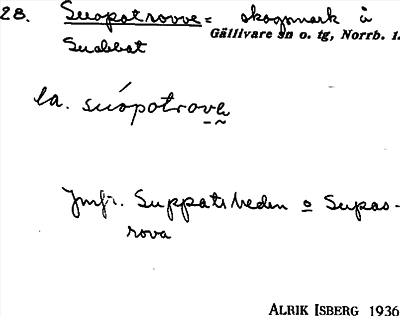 28. Suopotroove = skogsmark å
Gällivare sn o. tg, Norrb. l.
Suobbat
la. suópotrove
Jmfr. Suppats heden o Supas-
rova
ALRIK ISBERG 1936